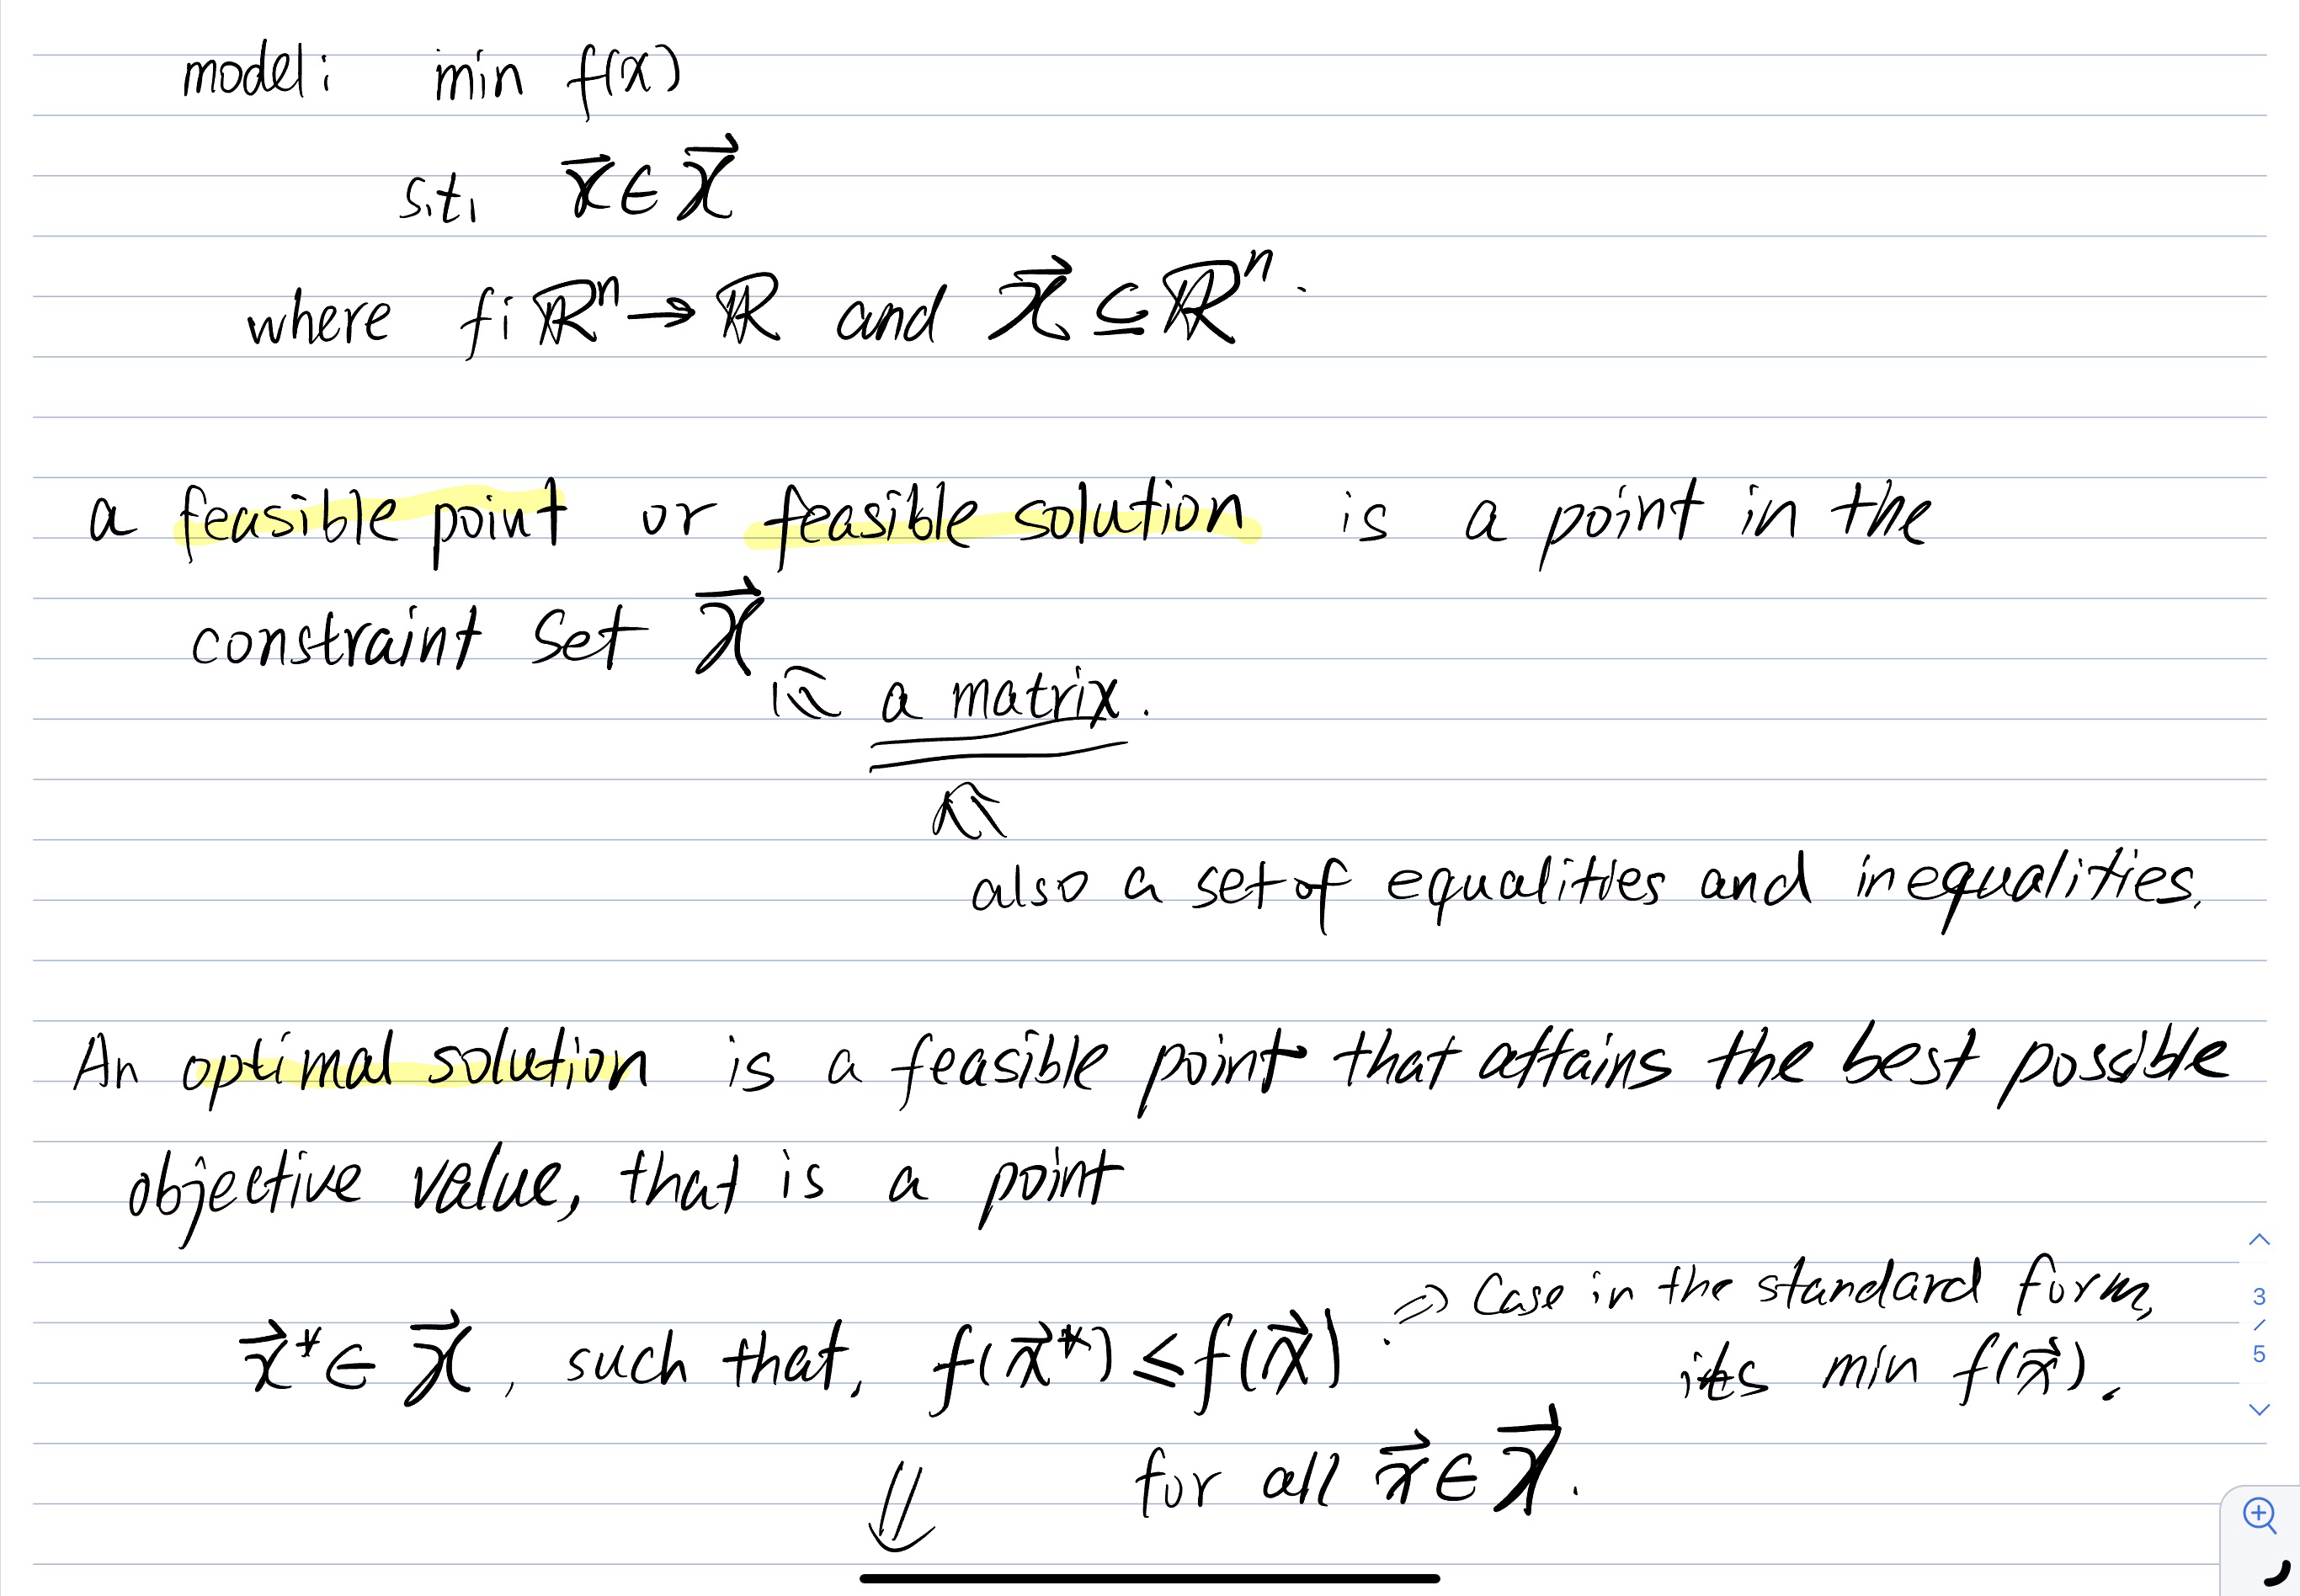 model: min f(x)
s.t. x⃗ ∈ X⃗
where f: ℝⁿ → ℝ and X⃗ ⊆ ℝⁿ.
a feasible point or feasible solution is a point in the
constraint set X⃗
a matrix.
also a set of equalities and inequalities.
An optimal solution is a feasible point that attains the best possible
objective value, that is a point
x⃗* ∈ X⃗, such that, f(x⃗*) ≤ f(x⃗). ⇒ Case in the standard form,
its min f(x⃗).
for all x⃗ ∈ X⃗.
3
/
5